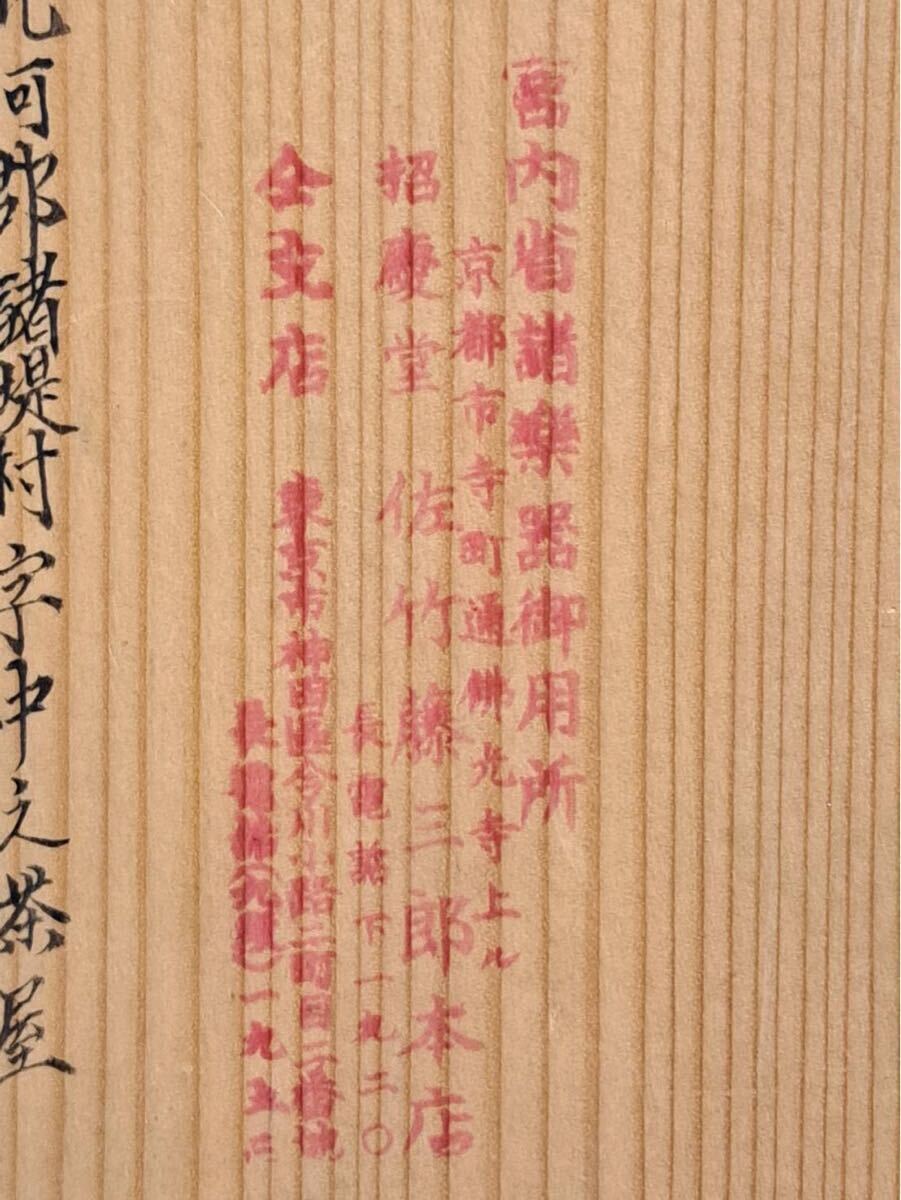 宮内省諸樂器御用所
京都市寺町通佛光寺上ル
招慶堂 佐竹藤三郎本店
長電話下一九二〇
仝支店 東京市神田區今川小路二丁目二番地
長電話 一九五
可郡諸堤村字中之茶屋